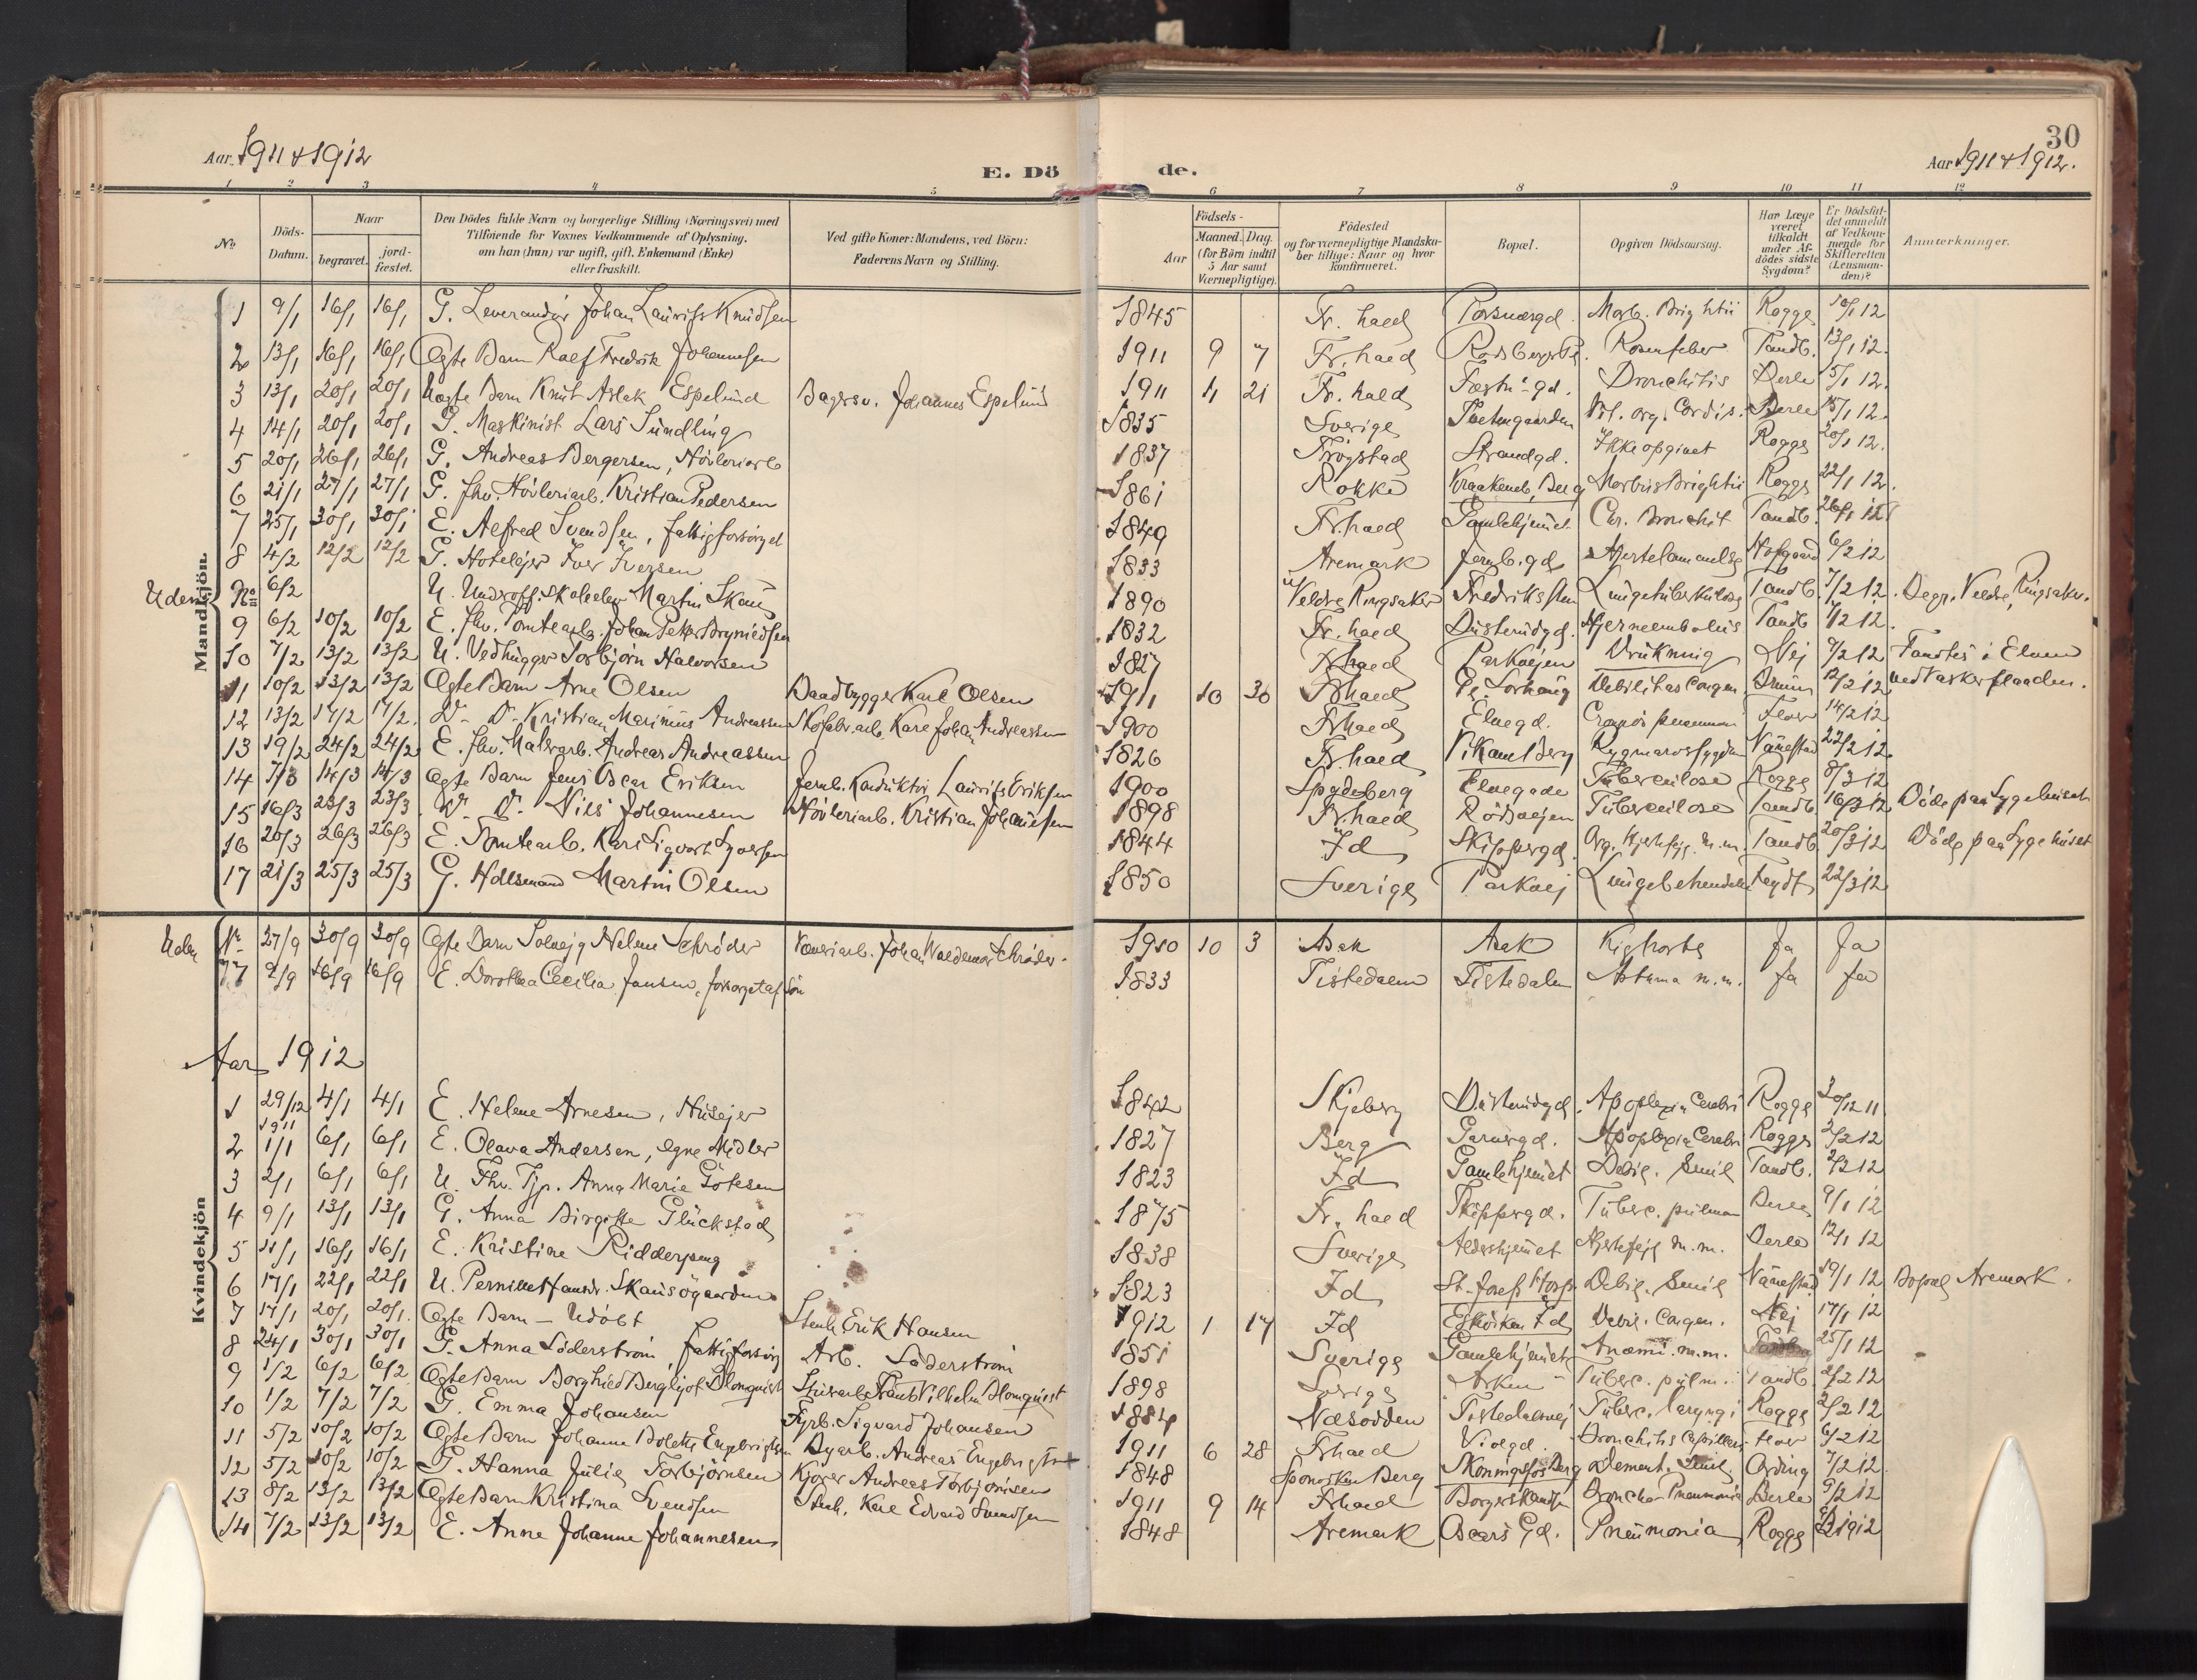 30
Aar 1911 & 1912
E. Dö de.
Aar 1911 & 1912.
1 2 3 4 5 6 7 8 9 10 11 12
No
Döds-Datum.
Naar
begravet.
jord-fæstet.
Den Dödes fulde Navn og borgerlige Stilling (Næringsvei) med
Tilföiende for Voxnes Vedkommende af Oplysning,
om han (hun) var ugift, gift, Enkemand (Enke)
eller fraskilt.
Ved gifte Koner: Mandens, ved Börn:
Faderens Navn og Stilling.
Aar
Födsels-
Maaned. Dag.
(for Börn indtil
5 Aar samt
Værnepligtige).
Födested
og for værnepligtige Mandska-
ber tillige: Naar og hvor
konfirmeret.
Bopæl.
Opgiven Dödsaarsag.
Har Læge
været
tilkaldt
under Af-
dödes sidste
Sygdom?
Er Dödsfal-
det anmeldt
af Vedkom-
mende for
Skifteretten
(Lensman-
den)?
Anmærkninger.
Mandkjön.
1 9/1 16/1 16/1 G. Leverandör Johan Laurits Knudsen 1845 Fr. hald Porsnærgd. Morb. Brightii Rogge 10/1 12
2 13/1 16/1 16/1 Ægte Barn Ralf Fredrik Johannesen 1911 9 7 Fr. hald Rosenfeber Tandb. 13/1 12.
3 13/1 20/1 20/1 Uægte Barn Knut Aslak Espelund Bagersv. Johannes Espelund 1911 11 21 Fr. hald Fæstn.gd. Bronchitis Berle 15/1 12.
4 14/1 20/1 20/1 G. Maskinist Lars Sundling 1835 Sverige Vit. org. Cordis. Berle 15/1 12.
5 20/1 26/1 26/1 G. Andreas Bergersen, Hövleriarb 1837 Trögstad Strandgd. Ikke opgivet Rogge 20/1 12.
6 21/1 27/1 27/1 G. fhv. Hövleriarb. Kristian Pedersen 1861 Rokke Kraakeneb, Berg Morbus Brightii Rogge 22/1 12.
7 25/1 30/1 30/1 E. Alfred Svendsen, fattigforsörget 1849 Fr. hald Gamlehjemet Chr. Bronchit Tandb. 26/1 12
8 4/2 12/2 12/2 G. Hotelejer Iver Iversen 1833 Aremark Jernb. gd Hjertelammelse Hofgaard 6/2 12
Uden No 6/2 U. Underoff. skoleelev Martin Skau 1890 Veldre Ringsaker Fredriksten Lungetuberkulose Tandb. 7/2 12. Begr. Veldre, Ringsaker.
9 6/2 10/2 10/2 E. fhv. Tomtearb. Johan Petter Brynildsen 1832 Fr. hald Busterudgd. Hjerneembolus Tandb 7/2 12.
10 7/2 13/2 13/2 U. Vedhugger Torbjörn Halvorsen 1827 Frhald Parkvejen Drukning Nej 9/2 12 Fandtes i Elven
ved Vaskerflaaden.
11 10/2 13/2 13/2 Ægte Barn Arne Olsen Baadbygger Karl Olsen 1911 10 30 Frhald Debilitas Congen. Bruun 12/2 12
12 13/2 17/2 17/2. Do Do Kristian Marinius Andreassen Skofabr.arb. Karl Johan Andreassen 1900 Frhald Elvegd. Croupös pneumoni 14/2 12
13 19/2 24/2 24/2 E. fhv. Malerarb. Andreas Andreassen 1826 Fr. hald Vikaml Berg Rygmarvssygdom Nannestad 22/2 12.
14 7/3 14/3 14/3 Ægte Barn Jens Oscar Eriksen Jernb. Konduktör Laurits Eriksen 1900 Spydeberg Elvegade Tuberculose Rogge 8/3 12
15 16/3 23/3 23/3 Do Do Nils Johannesen Hövleriarb. Kristian Johannesen 1898 Fr. hald Rödsvejen Tuberculose Tandb. 16/3 12 Döde paa Sygehuset
16 20/3 26/3 26/3 E. Tomtearb. Karl Sigvart Syversen 1844 Id Skippergd. Org. Hjertesyg. m. m. Tandb. 20/3 12 Döde paa Sygehuset
17 21/3 25/3 25/3 G. Halsmand Martin Olsen 1850 Sverige Parkvej Lungebetændelse 22/3 12
Uden No 27/9 30/9 30/9 Ægte Barn Solvejg Helene Schröder Væveriarb. Johan Valdemar Schröder. 1910 10 3 Asak Asak Kighoste Ja Ja
77 9/9 16/9 16/9 E. Dorothea Cecilia Jansen, forsörget af sön 1833 Tistedalen Tistedalen Astma m. m. Ja Ja
Aar 1912
Kvindekjön
1 29/12 1911 4/1 4/1 E. Helene Arnesen, Husejer 1842 Skjeberg Busterudgd. Apoplexia Cerebri Rogge 30/12 11
2 1/1 6/1 6/1 E. Olava Andersen, egne Midler 1827 Berg Garvergd. Apoplexia Cerebri Rogge 2/2 12
3 2/1 6/1 6/1 U. Fhv. Tjp. Anna Marie Götesen 1823 Id Gamlehjemet Debil. Senil Tandb. 2/2 12
4 9/1 13/1 13/1 G. Anna Birgitte Glückstad 1875 Fr. hald Skippergd. Tuberc. pulmon Berle 9/1 12
5 11/1 16/1 16/1 E. Kristine Ridderpeng 1838 Sverige Aldershjemet Hjertesyg m. m. Berle 12/1 12
6 17/1 22/1 22/1 U. Pernille Hansdr. Skausögaarden 1823 Id St. Josefs Hosp. Debil. Senil Nannestad 19/1 12 Bopæl Aremark.
7 17/1 20/1 20/1. Ægte Barn – Udöbt Stenh. Erik Hansen 1912 1 17 Id Eskviken Id Debil. Congen. Nej 17/1 12
8 24/1 30/1 30/1 G. Anna Söderström, fattigforsörg Arb. Söderström 1851 Sverige Gamlehjemet Anæmi. m. m. 25/1 12
9 1/2 6/2 6/2 Ægte Barn Borghild Bergljot Blomquist Frants Vilhelm Blomquist 1898 Sverige Arken Tuberc. pulm. Tandb. 2/2 12
10 1/2 7/2 7/2 G. Emma Johansen Fyrb. Sigvard Johansen 1884 Næsodden Tistedalsvej Tuberc. laryngi Rogge 2/2 12
11 5/2 10/2 10/2 Ægte Barn Johanne Bolette Engebrigtsen Byarb. Andreas Engebrigtsen 1911 6 28 Frhald Violgd. Bronchitis Capillaris 6/2 12
12 5/2 10/2 10/2 G. Hanna Julie Torbjörnsen Kjörer Andreas Torbjörnsen 1848 Sponviken Berg Skonningsfos Berg Dement. Senil Ording 7/2 12.
13 8/2 13/2 13/2 Ægte Barn Kristina Svendsen Stenh. Karl Edvard Svendsen 1911 9 14 Frhald Borgerskandsen Broncho Pneumonia Berle 9/2 12
14 7/2 13/2 13/2 E. Anne Johanne Johannesen 1848 Aremark Oscars Gd. Pneumonia Rogge 8/2 1912